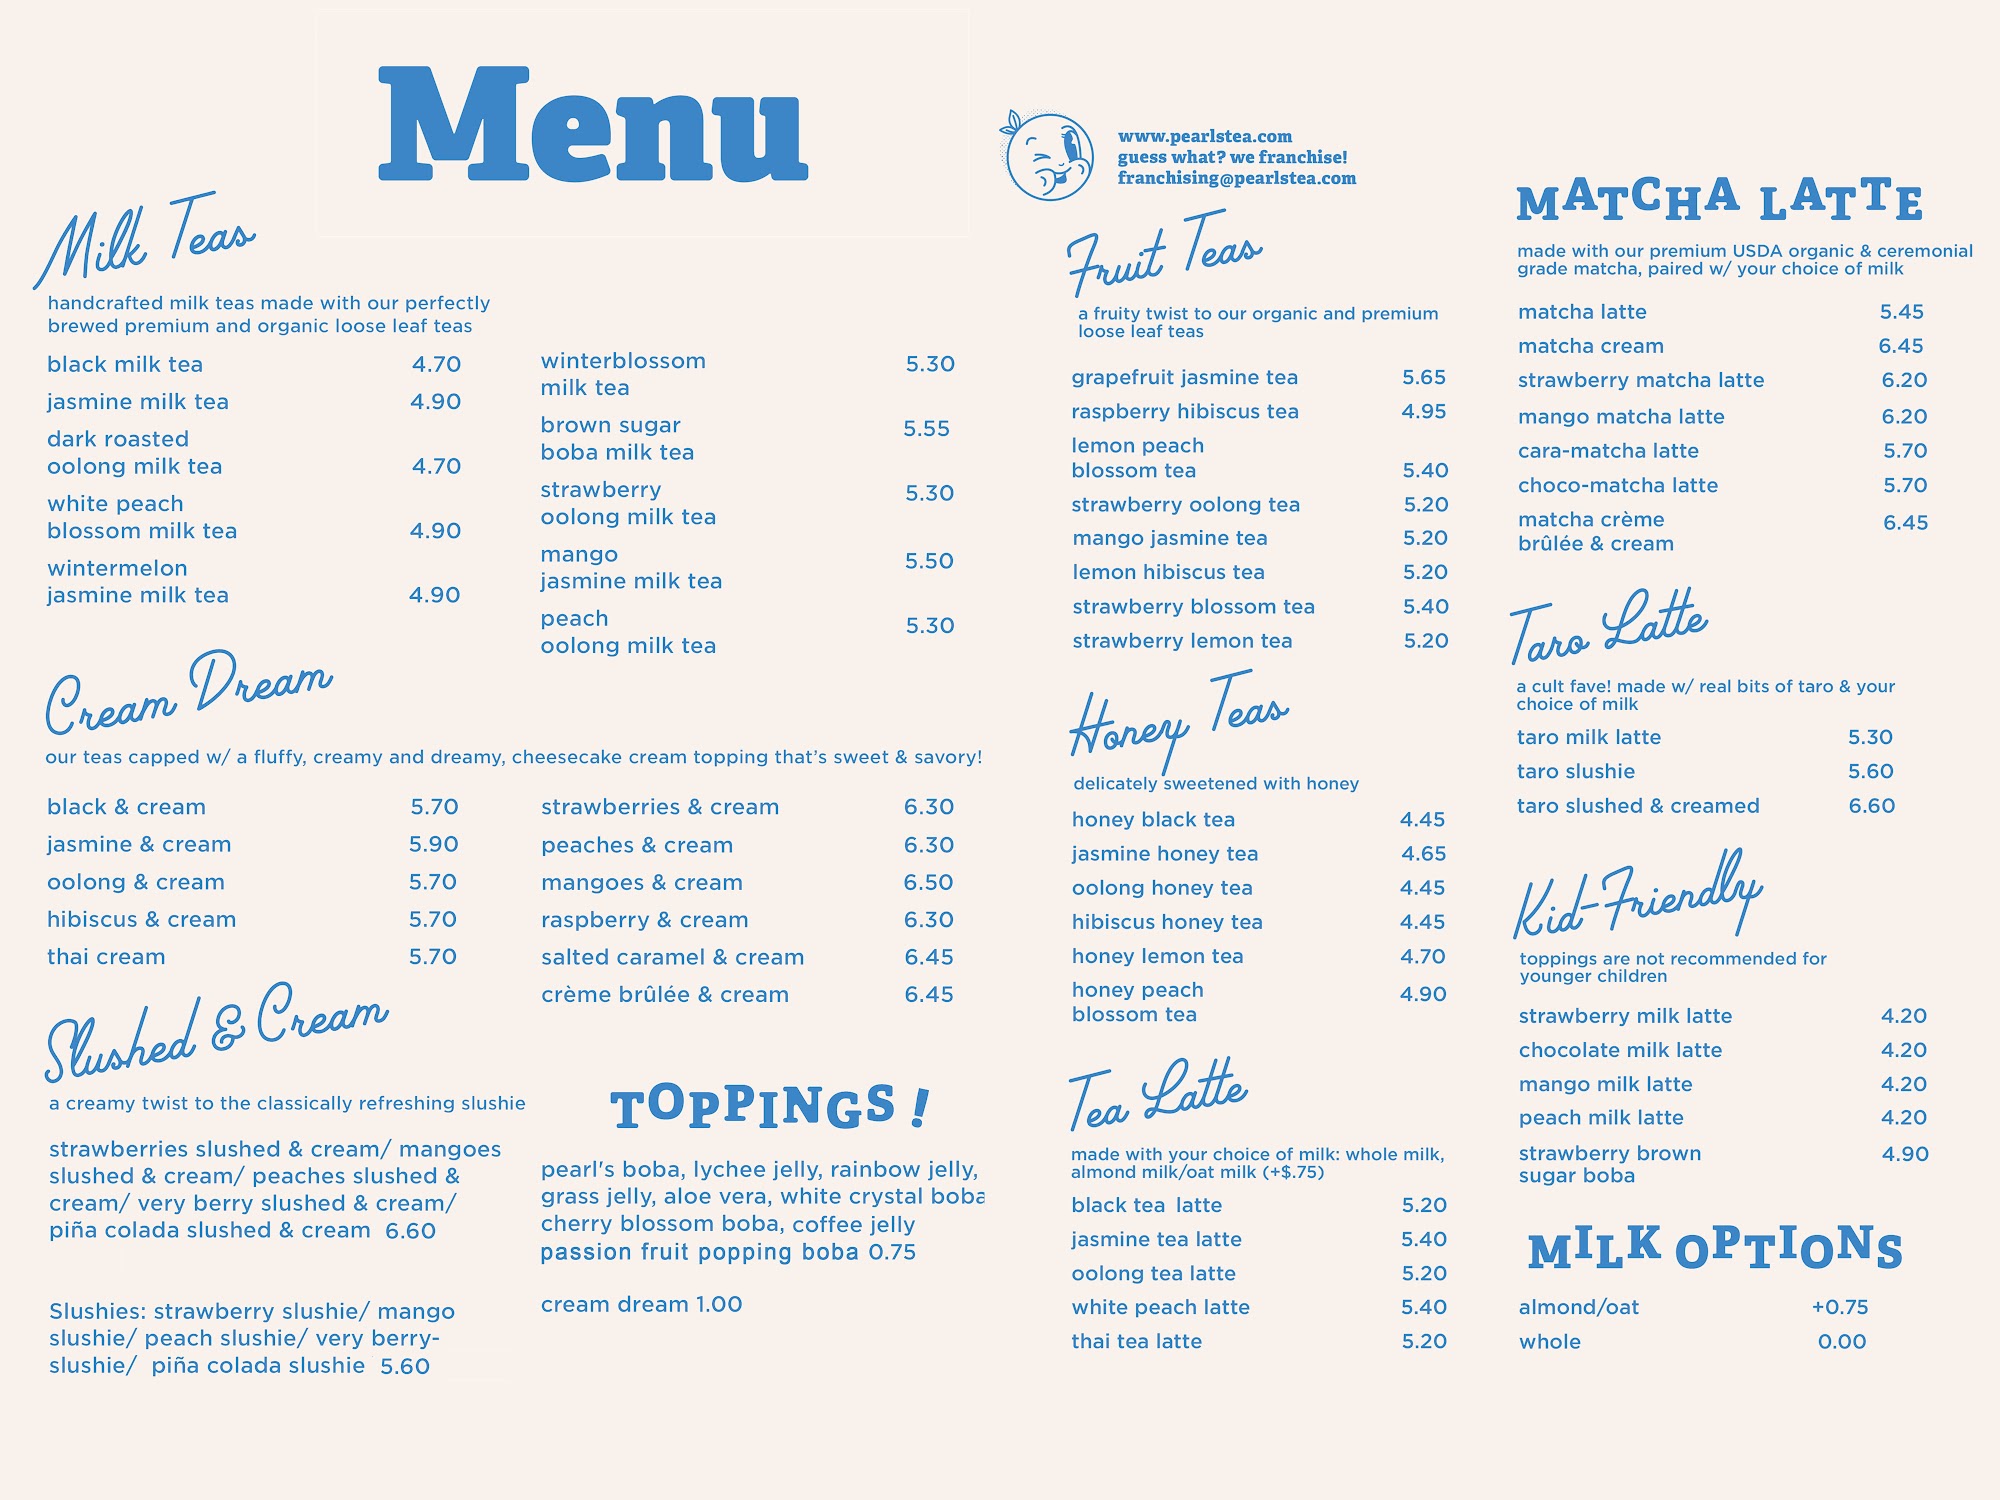 Menu
Milk Teas
handcrafted milk teas made with our perfectly
brewed premium and organic loose leaf teas
black milk tea 4.70
jasmine milk tea 4.90
dark roasted
oolong milk tea 4.70
white peach
blossom milk tea 4.90
wintermelon
jasmine milk tea 4.90
winterblossom 5.30
milk tea
brown sugar 5.55
boba milk tea
strawberry 5.30
oolong milk tea
mango 5.50
jasmine milk tea
peach 5.30
oolong milk tea
Cream Dream
our teas capped w/ a fluffy, creamy and dreamy, cheesecake cream topping that's sweet & savory!
black & cream 5.70
jasmine & cream 5.90
oolong & cream 5.70
hibiscus & cream 5.70
thai cream 5.70
strawberries & cream 6.30
peaches & cream 6.30
mangoes & cream 6.50
raspberry & cream 6.30
salted caramel & cream 6.45
crème brûlée & cream 6.45
Slushed & Cream
a creamy twist to the classically refreshing slushie
strawberries slushed & cream/ mangoes
slushed & cream/ peaches slushed &
cream/ very berry slushed & cream/
piña colada slushed & cream 6.60
Slushies: strawberry slushie/ mango
slushie/ peach slushie/ very berry-
slushie/ piña colada slushie 5.60
TOPPINGS !
pearl's boba, lychee jelly, rainbow jelly,
grass jelly, aloe vera, white crystal boba
cherry blossom boba, coffee jelly
passion fruit popping boba 0.75
cream dream 1.00
www.pearlstea.com
guess what? we franchise!
franchising@pearlstea.com
Fruit Teas
a fruity twist to our organic and premium
loose leaf teas
grapefruit jasmine tea 5.65
raspberry hibiscus tea 4.95
lemon peach
blossom tea 5.40
strawberry oolong tea 5.20
mango jasmine tea 5.20
lemon hibiscus tea 5.20
strawberry blossom tea 5.40
strawberry lemon tea 5.20
Honey Teas
delicately sweetened with honey
honey black tea 4.45
jasmine honey tea 4.65
oolong honey tea 4.45
hibiscus honey tea 4.45
honey lemon tea 4.70
honey peach 4.90
blossom tea
Tea Latte
made with your choice of milk: whole milk,
almond milk/oat milk (+$.75)
black tea latte 5.20
jasmine tea latte 5.40
oolong tea latte 5.20
white peach latte 5.40
thai tea latte 5.20
MATCHA LATTE
made with our premium USDA organic & ceremonial
grade matcha, paired w/ your choice of milk
matcha latte 5.45
matcha cream 6.45
strawberry matcha latte 6.20
mango matcha latte 6.20
cara-matcha latte 5.70
choco-matcha latte 5.70
matcha crème 6.45
brûlée & cream
Taro Latte
a cult fave! made w/ real bits of taro & your
choice of milk
taro milk latte 5.30
taro slushie 5.60
taro slushed & creamed 6.60
Kid-Friendly
toppings are not recommended for
younger children
strawberry milk latte 4.20
chocolate milk latte 4.20
mango milk latte 4.20
peach milk latte 4.20
strawberry brown 4.90
sugar boba
MILK OPTIONS
almond/oat +0.75
whole 0.00